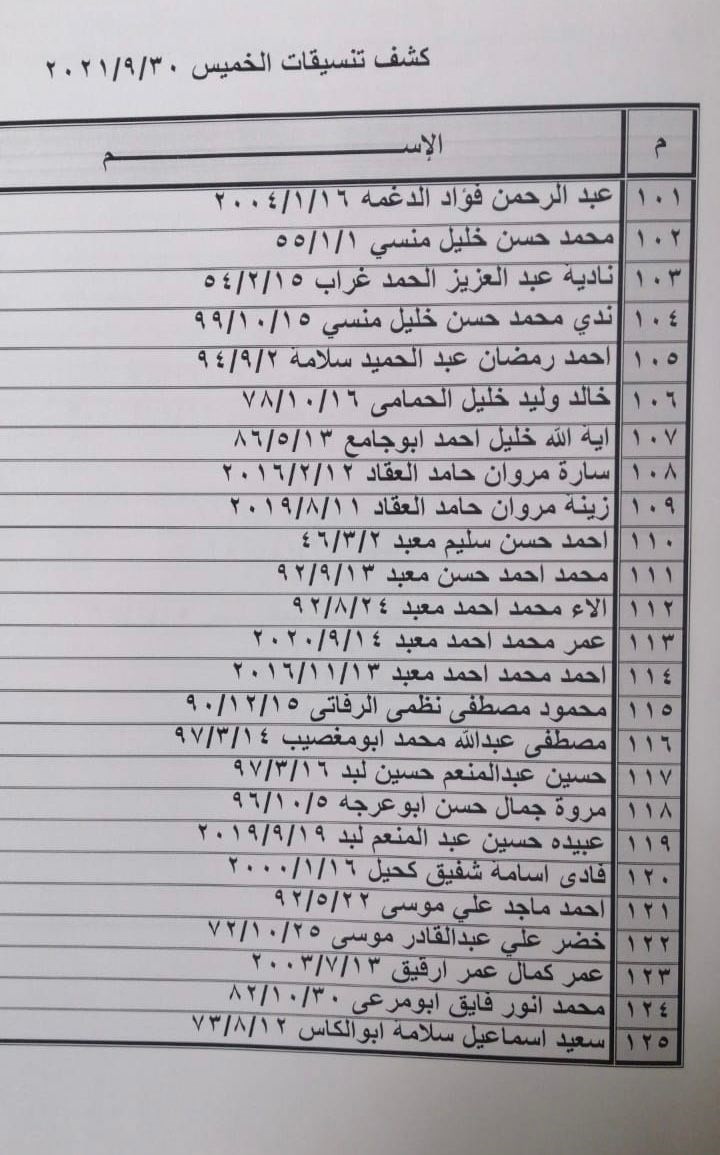 كشف تنسيقات الخميس ٢٠٢١/٩/٣٠
م الإســـــــــــــــــــــــم
١٠١ عبد الرحمن فؤاد الدغمه ٢٠٠٤/١/١٦
١٠٢ محمد حسن خليل منسي ٥٥/١/١
١٠٣ نادية عبد العزيز الحمد غراب ٥٤/٢/١٥
١٠٤ ندي محمد حسن خليل منسي ٩٩/١٠/١٥
١٠٥ احمد رمضان عبد الحميد سلامة ٩٤/٩/٢
١٠٦ خالد وليد خليل الحمامى ٧٨/١٠/١٦
١٠٧ اية الله خليل احمد ابوجامع ٨٦/٥/١٣
١٠٨ سارة مروان حامد العقاد ٢٠١٦/٢/١٢
١٠٩ زينة مروان حامد العقاد ٢٠١٩/٨/١١
١١٠ احمد حسن سليم معبد ٤٦/٣/٢
١١١ محمد احمد حسن معبد ٩٢/٩/١٣
١١٢ الاء محمد احمد معبد ٩٢/٨/٢٤
١١٣ عمر محمد احمد معبد ٢٠٢٠/٩/١٤
١١٤ احمد محمد احمد معبد ٢٠١٦/١١/١٣
١١٥ محمود مصطفى نظمى الرفاتى ٩٠/١٢/١٥
١١٦ مصطفى عبدالله محمد ابومغصيب ٩٧/٣/١٤
١١٧ حسين عبدالمنعم حسين لبد ٩٧/٣/١٦
١١٨ مروة جمال حسن ابوعرجه ٩٦/١٠/٥
١١٩ عبيده حسين عبد المنعم لبد ٢٠١٩/٩/١٩
١٢٠ فادى اسامة شفيق كحيل ٢٠٠٠/١/١٦
١٢١ احمد ماجد علي موسى ٩٢/٥/٢٢
١٢٢ خضر علي عبدالقادر موسى ٧٢/١٠/٢٥
١٢٣ عمر كمال عمر ارقيق ٢٠٠٣/٧/١٣
١٢٤ محمد انور فايق ابومرعى ٨٢/١٠/٣٠
١٢٥ سعيد اسماعيل سلامة ابوالكاس ٧٣/٨/١٢